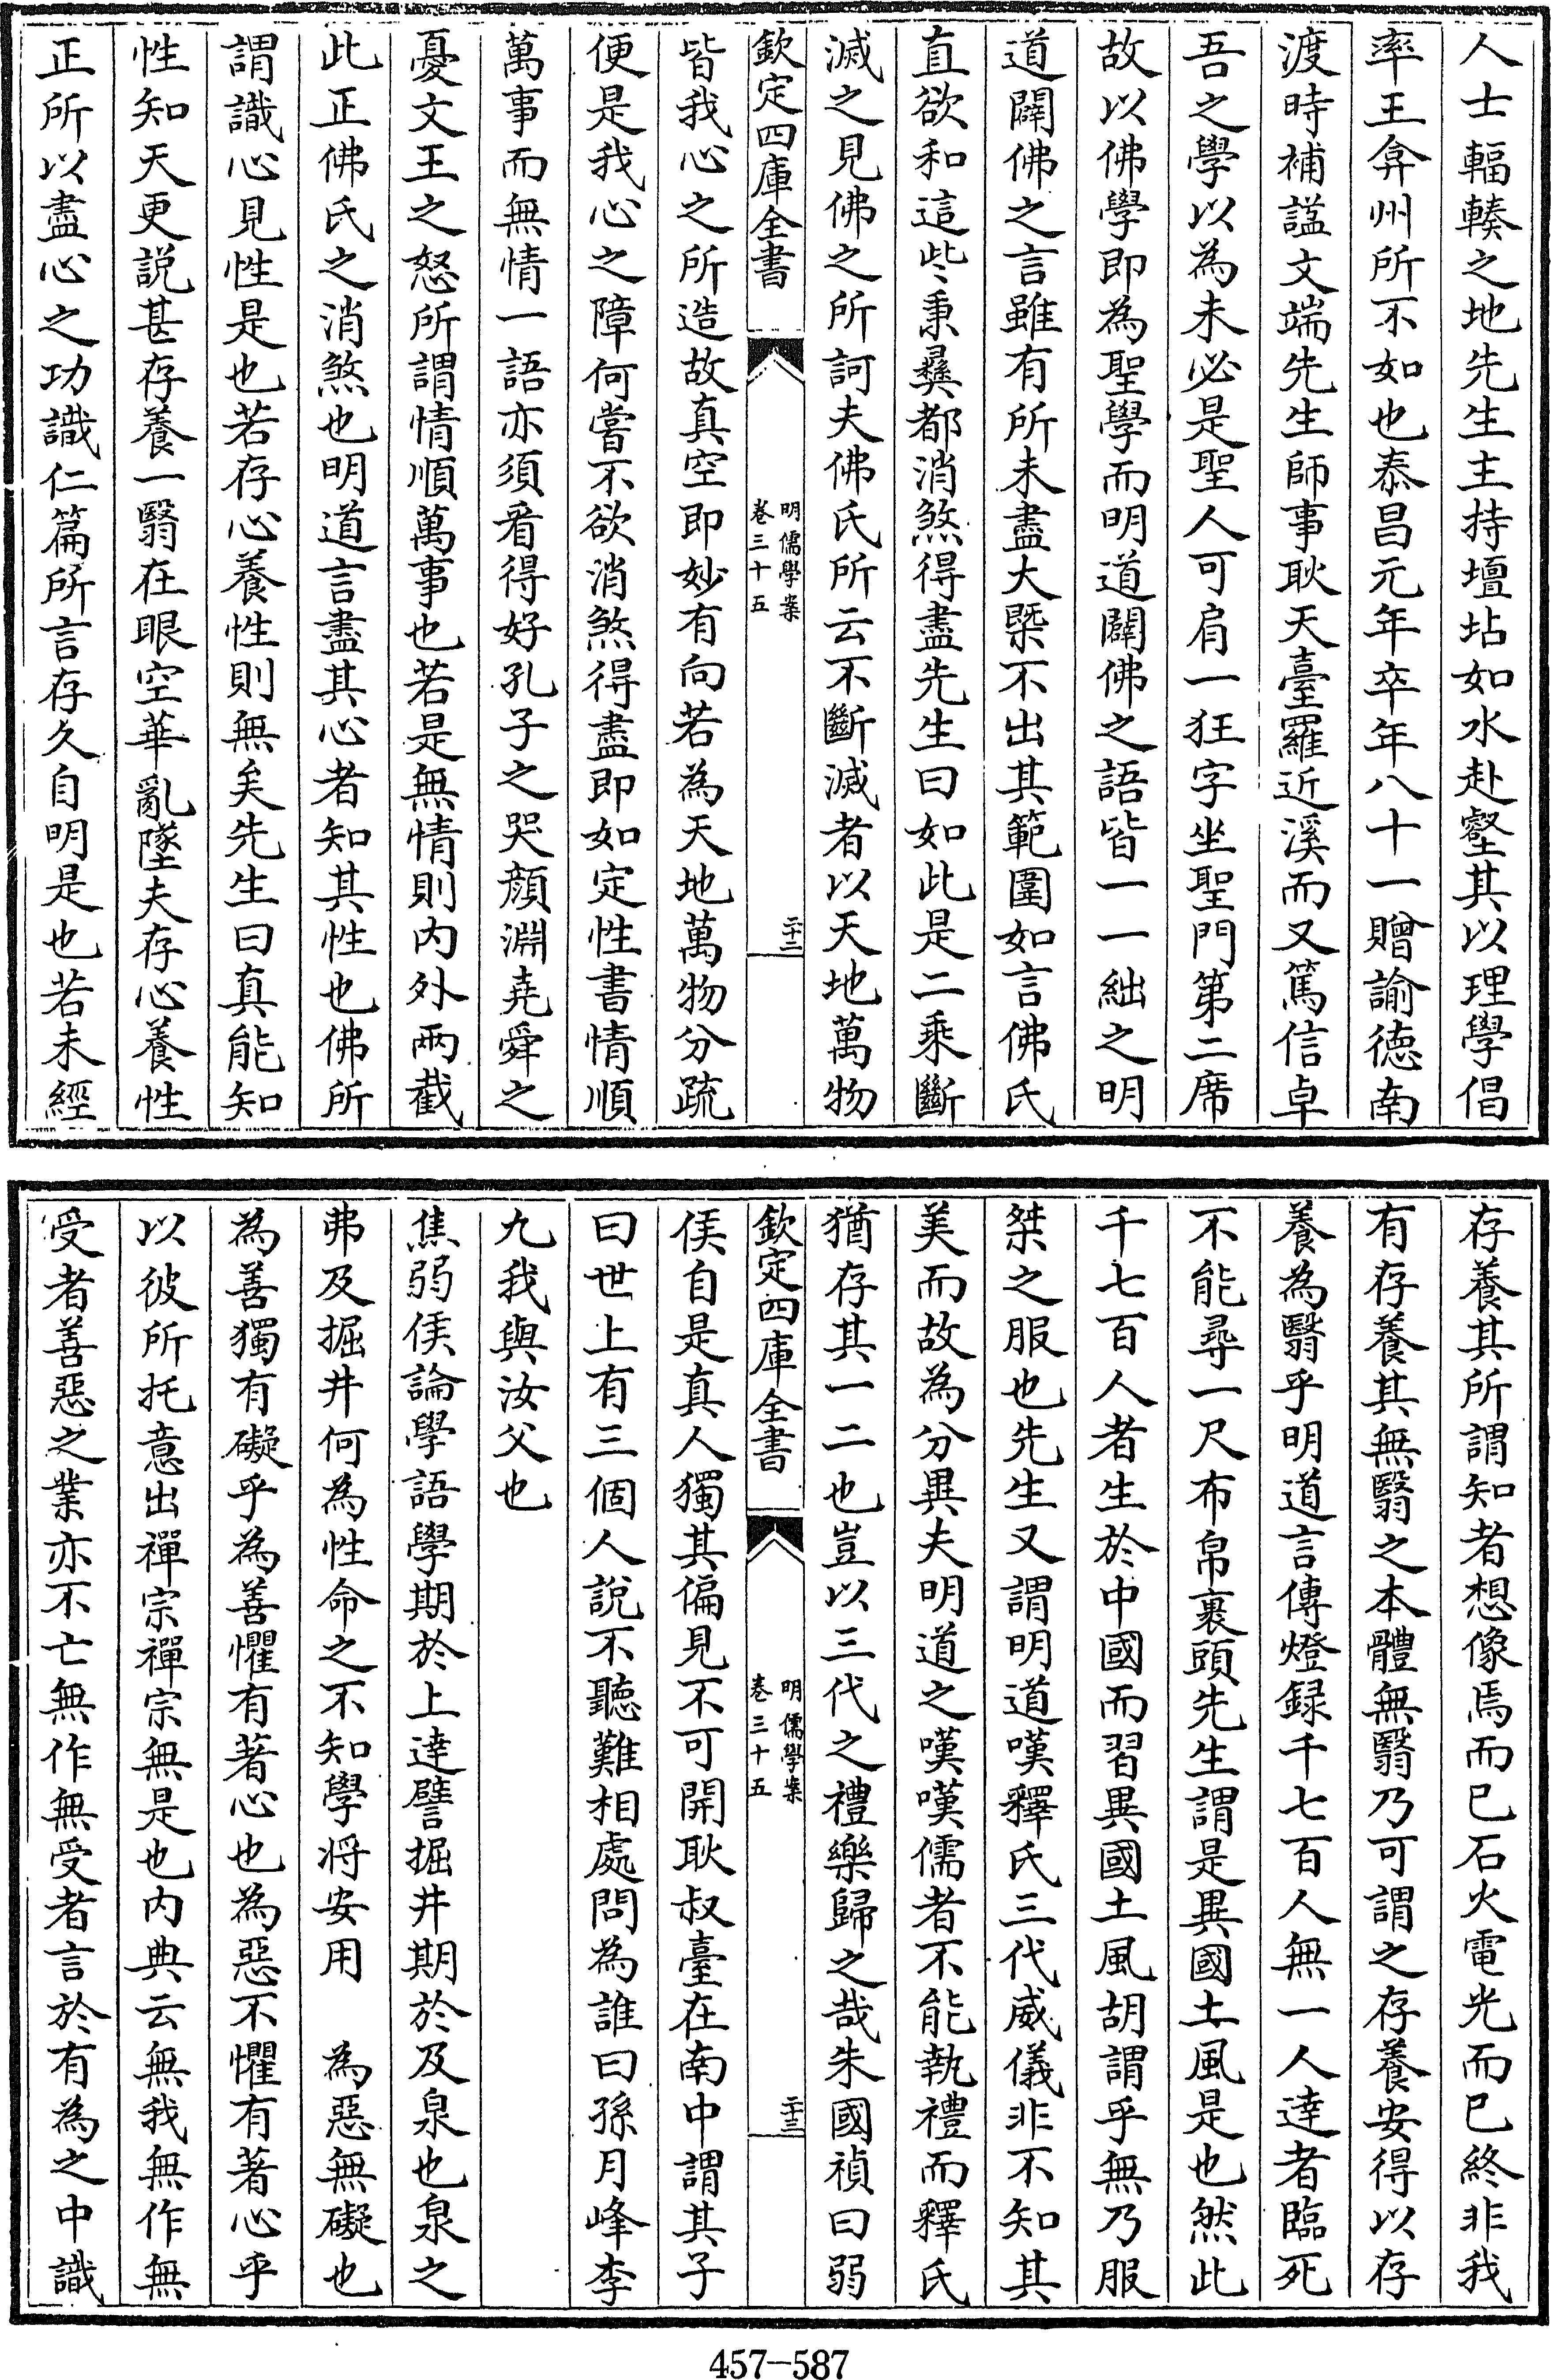 人士輻輳之地先生主持壇坫如水赴壑其以理學倡
率王弇州所不如也泰昌元年卒年八十一贈諭徳南
渡時補諡文端先生師事耿天臺羅近溪而又篤信卓
吾之學以為未必是聖人可肩一狂字坐聖門第二席
故以佛學即為聖學而明道闢佛之語皆一一絀之明
道闢佛之言雖有所未盡大槩不出其範圍如言佛氏
直欲和這些秉彝都消煞得盡先生曰如此是二乘斷
滅之見佛之所訶夫佛氏所云不斷滅者以天地萬物
欽定四庫全書
明儒學案
卷三十五
二十二
皆我心之所造故真空即妙有向若為天地萬物分疏
便是我心之障何嘗不欲消煞得盡即如定性書情順
萬事而無情一語亦須看得好孔子之哭顔淵堯舜之
憂文王之怒所謂情順萬事也若是無情則内外兩截
此正佛氏之消煞也明道言盡其心者知其性也佛所
謂識心見性是也若存心養性則無矣先生曰真能知
性知天更説甚存養一翳在眼空華亂墜夫存心養性
正所以盡心之功識仁篇所言存久自明是也若未經
存養其所謂知者想像焉而已石火電光而已終非我
有存養其無翳之本體無翳乃可謂之存養安得以存
養為翳乎明道言傳燈録千七百人無一人達者臨死
不能尋一尺布帛裹頭先生謂是異國土風是也然此
千七百人者生於中國而習異國土風胡謂乎無乃服
桀之服也先生又謂明道嘆釋氏三代威儀非不知其
美而故為分異夫明道之嘆嘆儒者不能執禮而釋氏
猶存其一二也豈以三代之禮樂歸之哉朱國禎曰弱
欽定四庫全書
明儒學案
卷三十五
二十三
侯自是真人獨其偏見不可開耿叔臺在南中謂其子
曰世上有三個人説不聽難相處問為誰曰孫月峰李
九我與汝父也
焦弱侯論學語學期於上達譬掘井期於及泉也泉之
弗及掘井何為性命之不知學將安用　為惡無礙也
為善獨有礙乎為善懼有著心也為惡不懼有著心乎
以彼所托意出禪宗禪宗無是也内典云無我無作無
受者善惡之業亦不亡無作無受者言於有為之中識
457-587